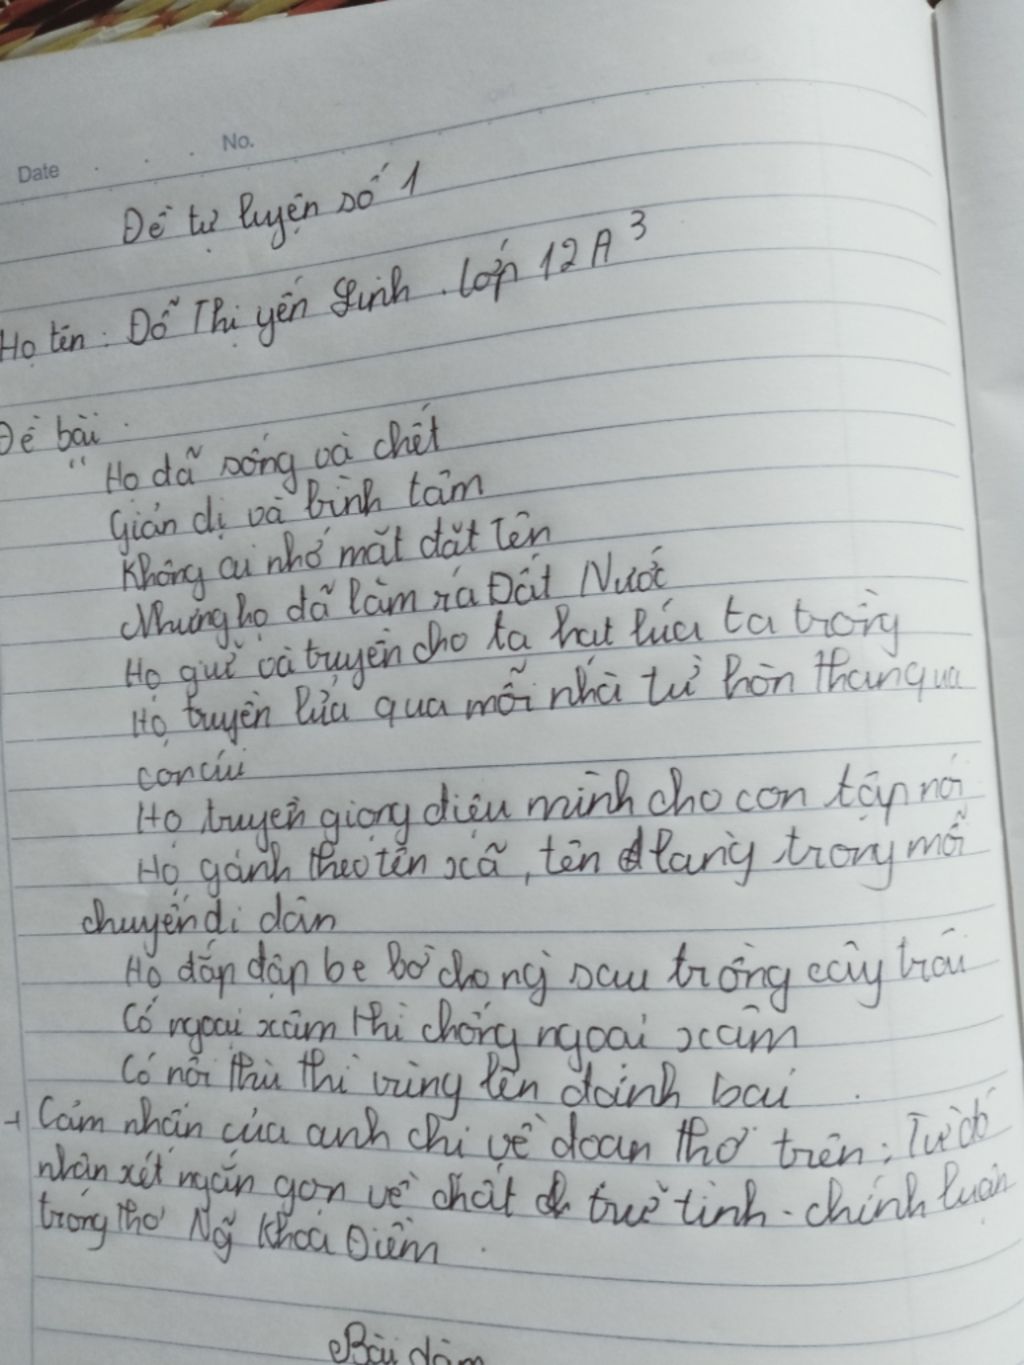 Date No.
Đề tự luyện số 1
Họ tên: Đỗ Thị yến Linh. Lớp 12A3
Đề bài:
"Họ đã sống và chết
Giản dị và bình tâm
Không ai nhớ mặt đặt tên
Nhưng họ đã làm ra Đất Nước
Họ giữ và truyền cho ta hạt lúa ta trồng
Họ truyền lửa qua mỗi nhà từ hòn than qua
con cúi
Họ truyền giọng điệu mình cho con tập nói
Họ gánh theo tên xã, tên làng trong mỗi
chuyến di dân
Họ đắp đập be bờ cho ng sau trồng cây trái
Có ngoại xâm thì chống ngoại xâm
Có nội thù thì vùng lên đánh bại.
+ Cảm nhận của anh chị về đoạn thơ trên; Từ đó
nhận xét ngắn gọn về chất trữ tình - chính luận
trong thơ Ng~ Khoa Điềm.
Bài làm